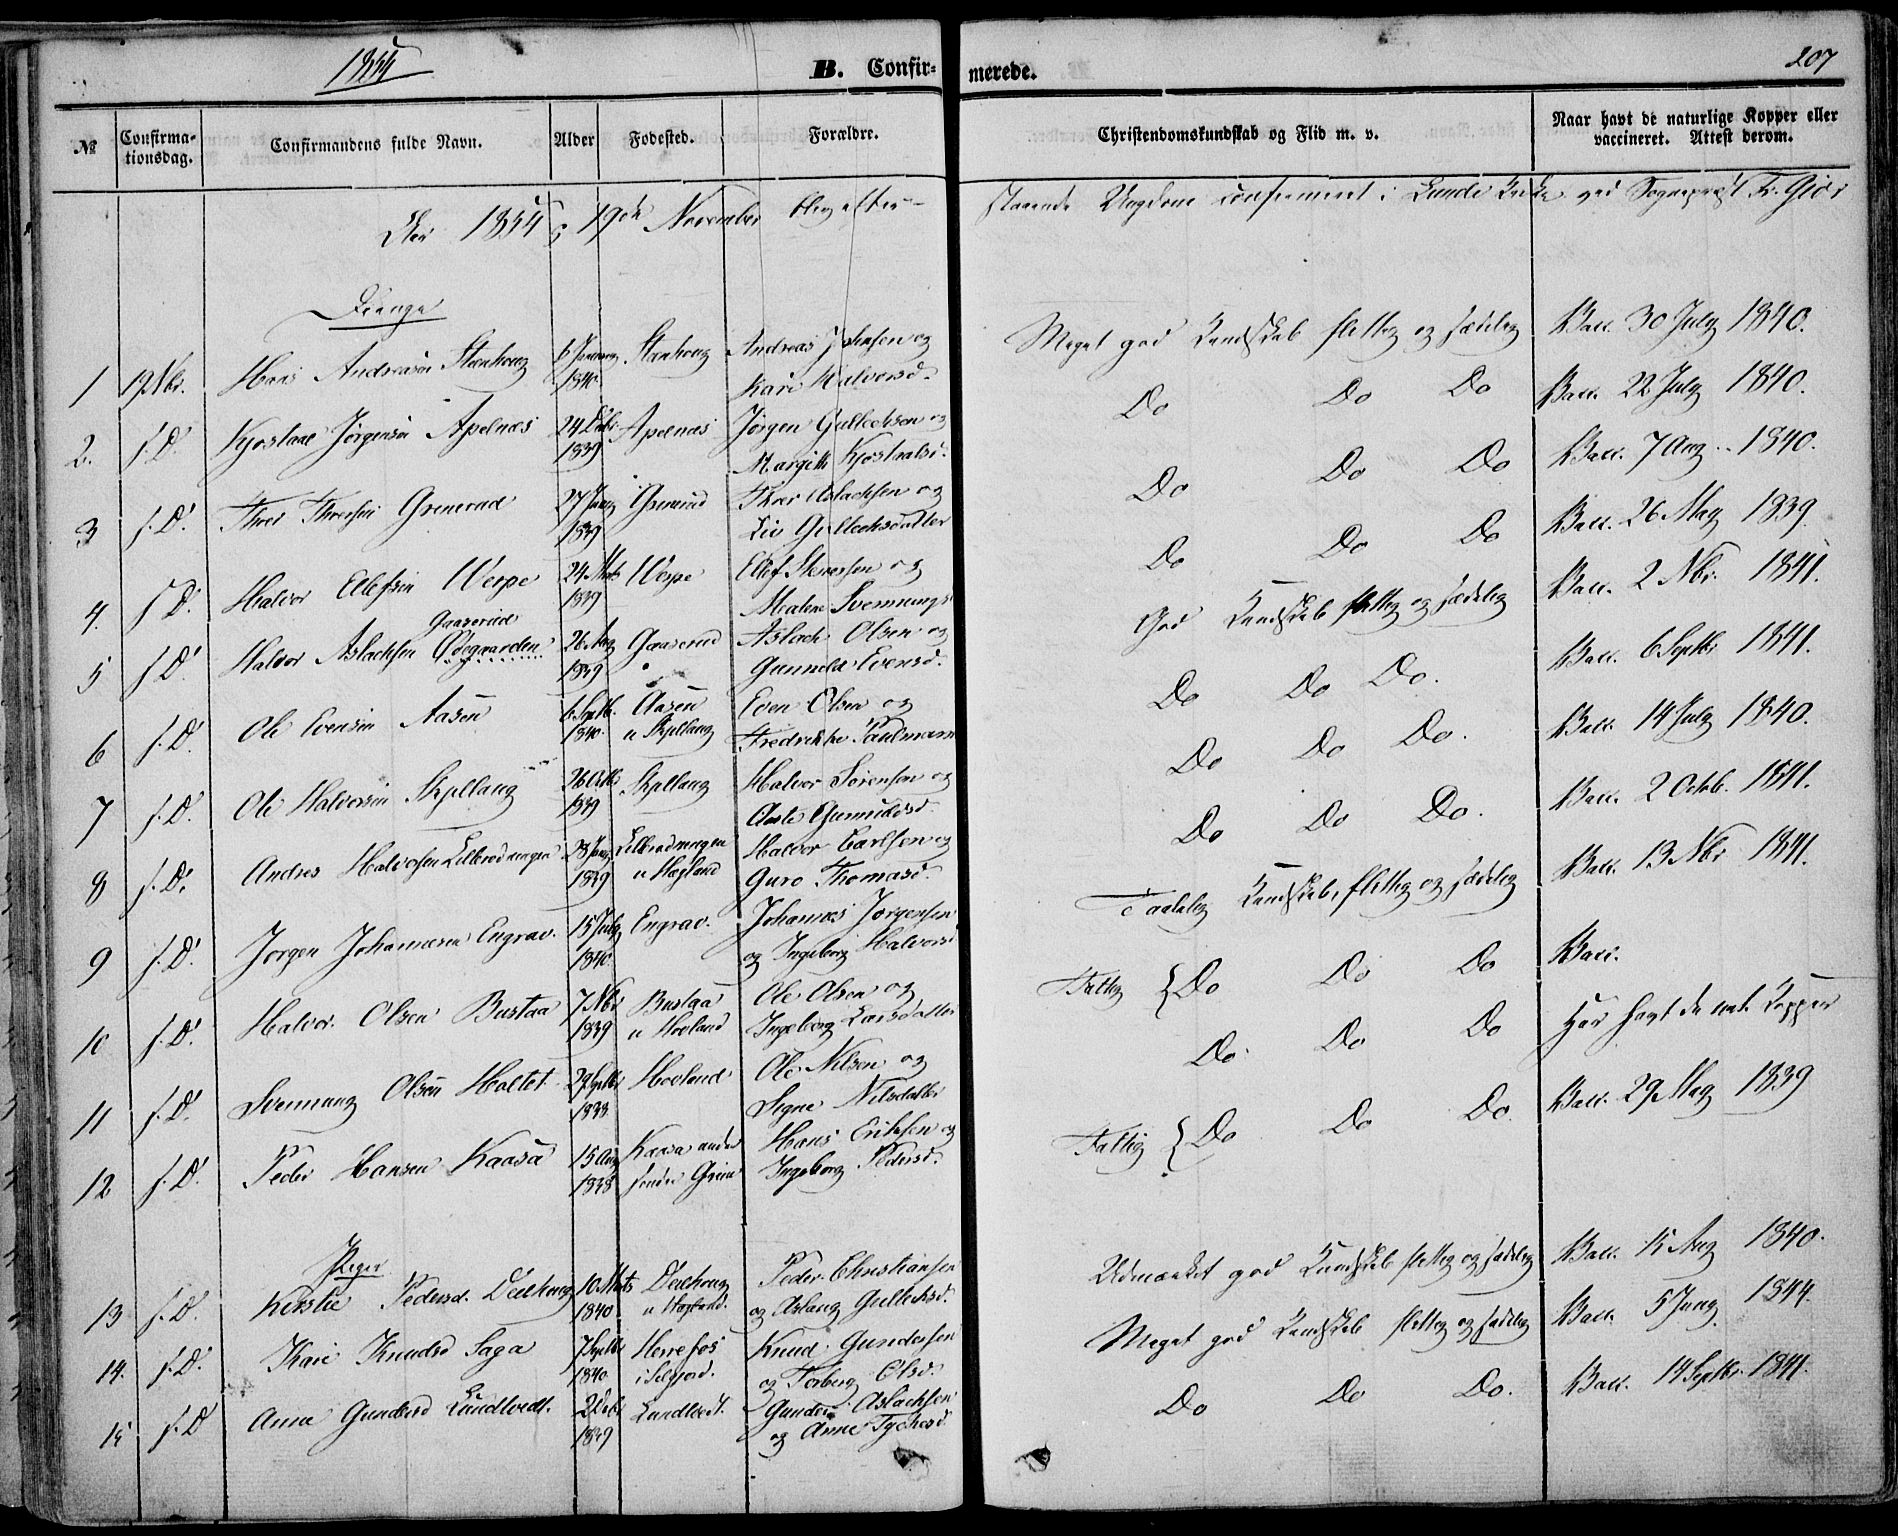 1854
B. Confir-
merede.
207
№
Confirma-
tionsdag.
Confirmandens fulde Navn.
Alder
Fødested.
Forældre.
Christendomskundskab og Flid m. v.
Naar havt de naturlige Kopper eller
vaccineret. Attest derom.
1854, 19de November blev efter-
staaende Ungdom confirmeret i Lunde Kirke ved Sognepræst Fr.
Drenge
1 19 Nbr. Hans Andreasen Stenhoug 1840. Stenhoug Andreas Jensen og
Kari Halvorsd.
Meget god Kundskab flittig og sædelig Vacc. 30 July 1840.
2. s. D. Kjostaal Jørgensen Apelnæs 24 Dcbr. 1839 Apelnæs Jørgen Gulleksen og
Margith Kjostaalsd.
Do Do Do Vacc. 22 July 1840.
3 s. D. Thor Thorsen Grinerud 27 1839 Grinerud Thor Aslachsen og
Liv Gullecksdatter
Do Do Do Vacc. 7 Aug. 1840.
4. s. D. Halvor Ellefsen Werpe 24 Marts 1839 Werpe Ellef Stenersen og
Malene Svennungs
Do Do Do Vacc. 26 May 1839.
Gaaserud
5 s. D. Halvor Aslachsen Ødegaarden 26 Aug 1839 Gaaserud Aslach Olsen og
Gunneld Evensd.
God Kundskab flittig og sædelig Vacc. 2 Nbr. 1841.
6 s. D. Ole Evensen Aasen 6 Septb. 1840. Aasen
u Skyllang Even Olsen og
Fredrikke Paulmann
Do Do Do. Vacc. 6 Septbr 1841.
7 s. D. Ole Halvorsen Skyllang 26 Octbr 1839 Skyllang Halvor Sørensen og
Aaste Gunnuldsd.
Do Do Do. Vacc. 14 July 1840.
8 s. D. Andres Halvorsen Lillerødningen 28 1839 Lillerødningen
u Hægland Halvor Carlsen og
Guro Thomasd.
Do Do Do. Vacc. 2 Octob. 1841.
9 s. D. Jørgen Johannesen Engrav. 15 July 1840. Engrav. Johannes Jørgensen
og Ingeborg Halvorsd
Taalelig Kundskab, flittig og sædelig Vacc. 13 Nbr 1841.
10 s. D. Halvor Olsen Bustaa 7 Nbr 1839 Bustaa
u Hovland Ole Olsen og
Ingeborg Larsdatter
Fattig { Do Do Do Vacc.
11 s. D. Svennung Olsen Haltet 29 Septbr 1838 Hovland Ole Nilsen og
Signe Nilsdatter
Do. Do Do Har havt de nat. Kopper
12 s. D. Peder Hansen Kaasa 15 Aug 1838 Kaasa under
søndre Grini Hans Eriksen og
Ingeborg Pedersd.
Fattig { Do Do Do. Vacc. 29 May 1839
Piger
13 s. D. Kirstie Pedersd. Deilhoug 10 Marts 1840 Deilhoug
u Hægland. Peder Christiansen
og Aslaug Gullecksd.
Udmærket god Kundskab flittig og sædelig Vacc. 15 Aug 1840.
14. s. D. Kari Knudsd Saga 7 Septbr 1840 Herrefos
i Selgjord. Knud Gundersen
og Torberg Olsd.
Meget god Kundskab flittig og sædelig Vacc. 5 Juny 1844.
15 s. D Anne Gundersd Lundtvedt. 2 Dcbr 1839 Lundtvedt. Gunder Aslachsen
og Anne Tychesd.
Do Do Do. Vacc. 14 Septbr. 1841.